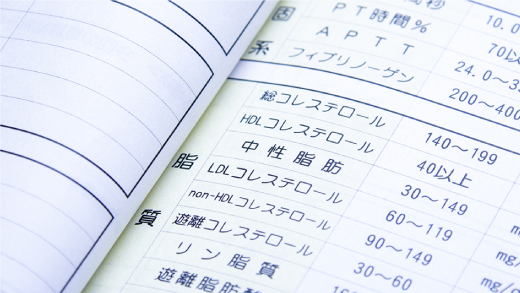 PT時間% 10.0
APTT 70以
フィブリノーゲン 24.0〜3
200〜400
総コレステロール 140〜199
HDLコレステロール 40以上
中性脂肪 30〜149
LDLコレステロール 60〜119
non-HDLコレステロール 90〜149
遊離コレステロール 30〜60
リン脂質
遊離脂肪
系
脂質
mg/